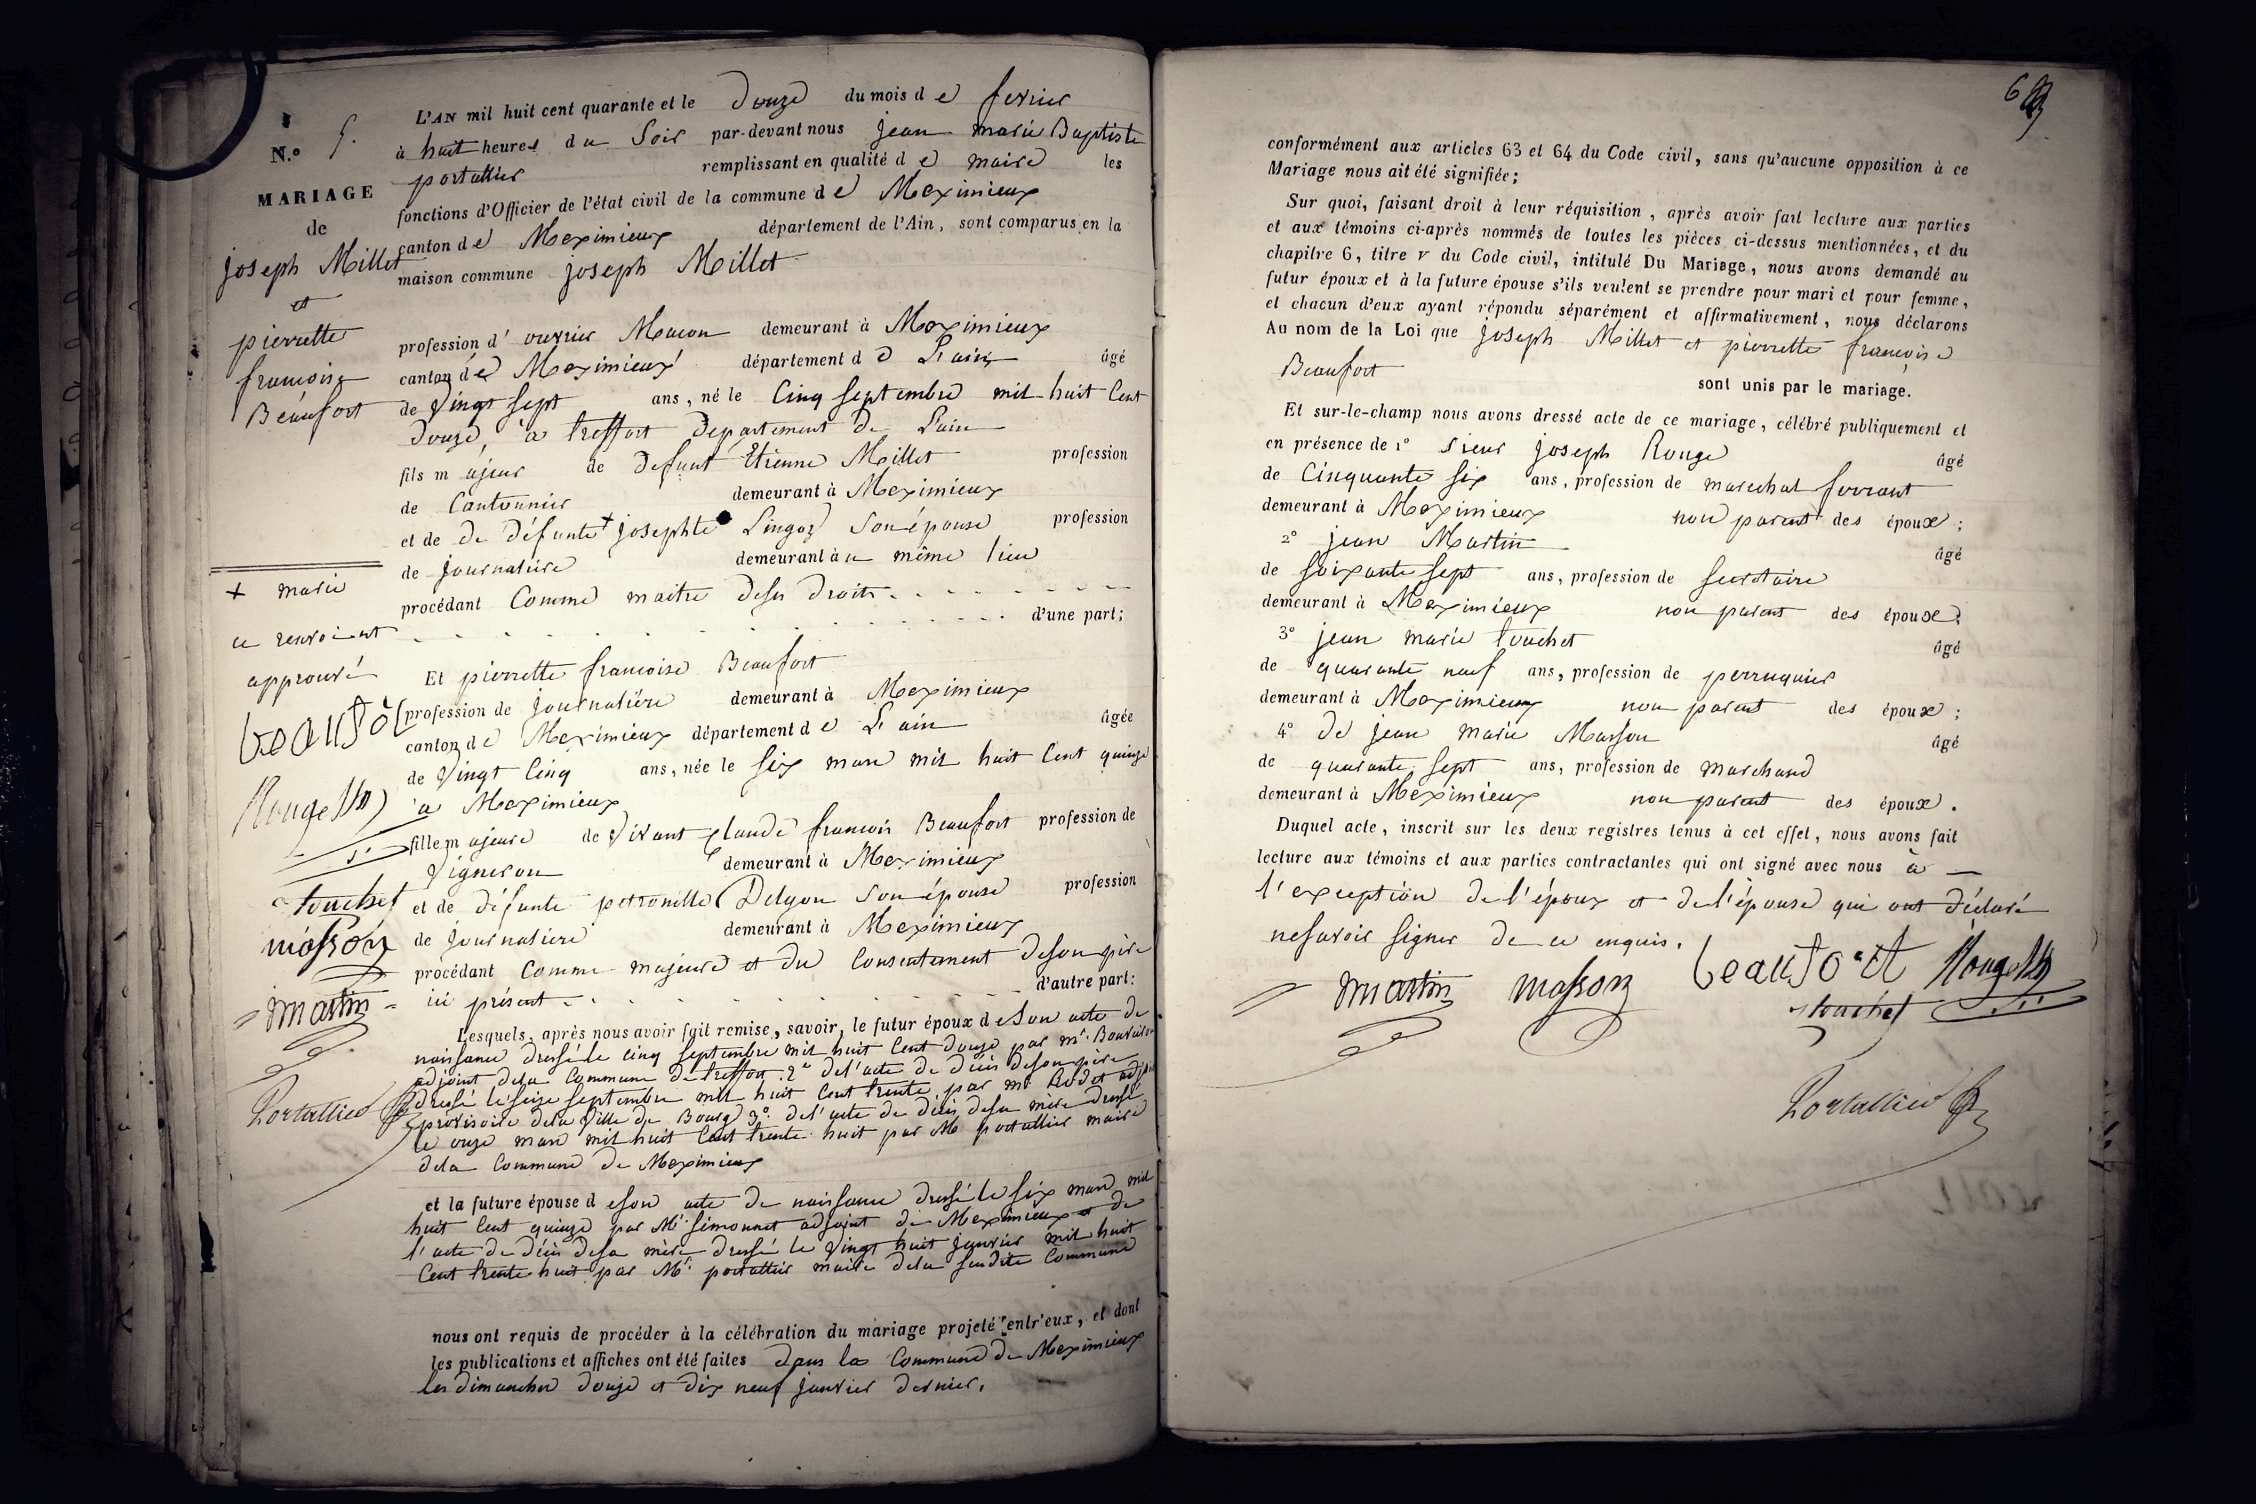 N.o 5.
MARIAGE
de
joseph Millet
et
pierrette
francoise
Beaufort
+ marie
ce renvoi est
approuvé
beaufort
Rouge
touchet
masson
martin
Portallier
L'AN mil huit cent quarante et le douze du mois de fevrier
à huit heures du Soir par-devant nous jean marie Baptiste
portallier remplissant en qualité de maire les
fonctions d'Officier de l'état civil de la commune de Meximieux
canton de Meximieux département de l'Ain, sont comparus en la
maison commune joseph Millet
profession d'ouvrier Macon demeurant à Meximieux
canton de Meximieux département de L'ain âgé
de Vingt Sept ans, né le Cinq Septembre mil huit Cent
douze, à treffort departement de L'ain
fils majeur de defunt Etienne Millet profession
de Cantonnier demeurant à Meximieux
et de de défunte + josephte Lingoz Son épouse profession
de journaliere demeurant à u même lieu
procédant Comme maitre de ses droits
d'une part;
Et pierrette francoise Beaufort
profession de journalière demeurant à Meximieux
canton de Meximieux département de L'ain âgée
de Vingt Cinq ans, née le six mars mil huit Cent quinze
à Meximieux
fille majeure de Vivant Claude francois Beaufort profession de
Vigneron demeurant à Meximieux
et de défunte petronille Delyon Son épouse profession
de journaliere demeurant à Meximieux
procédant Comme majeure et du Consentement de son père
ici présent d'autre part:
Lesquels, après nous avoir fait remise, savoir, le futur époux de Son acte de
naissance dressé le cinq septembre mil huit Cent douze par mr.
adjoint de la Commune de treffort. 2° de l'acte de décès de son père
dressé le seize septembre mil huit Cent trente par mr Rodet adjt
provisoire de la Ville de Bourg 3°. de l'acte de décès de sa mère dressé
le onze mars mil huit Cent trente huit par M portallier maire
de la Commune de Meximieux
et la future épouse de son acte de naissance dressé le six mars mil
huit Cent quinze par Mr. simonnet adjoint de Meximieux et de
l'acte de décès de sa mère dressé le Vingt huit janvier mil huit
Cent trente huit par Mr. portallier maire de la susdite Commune
nous ont requis de procéder à la célébration du mariage projeté entr'eux, et dont
les publications et affiches ont été faites dans la Commune de Meximieux
les dimanches douze et dix neuf janvier dernier.
conformément aux articles 63 et 64 du Code civil, sans qu'aucune opposition à ce
Mariage nous ait été signifiée;
Sur quoi, faisant droit à leur réquisition, après avoir fait lecture aux parties
et aux témoins ci-après nommés de toutes les pièces ci-dessus mentionnées, et du
chapitre 6, titre v du Code civil, intitulé Du Mariage, nous avons demandé au
futur époux et à la future épouse s'ils veulent se prendre pour mari et pour femme,
et chacun d'eux ayant répondu séparément et affirmativement, nous déclarons
Au nom de la Loi que joseph Millet et pierrette françoise
Beaufort
sont unis par le mariage.
Et sur-le-champ nous avons dressé acte de ce mariage, célébré publiquement et
en présence de 1° Sieur joseph Rouge âgé
de Cinquante six ans, profession de marechal ferrant
demeurant à Meximieux non parent des époux;
2° jean Martin âgé
de Soixante sept ans, profession de secretaire
demeurant à Meximieux non parent des époux;
3° jean marie touchet âgé
de quarante neuf ans, profession de perruquier
demeurant à Meximieux non parent des époux;
4° de jean marie Masson âgé
de quarante sept ans, profession de marchand
demeurant à Meximieux non parent des époux.
Duquel acte, inscrit sur les deux registres tenus à cet effet, nous avons fait
lecture aux témoins et aux parties contractantes qui ont signé avec nous à
l'exception de l'époux et de l'épouse qui ont déclaré
ne Savoir Signer de ce enquis.
martin masson beaufort Rouge
touchet
Portallier